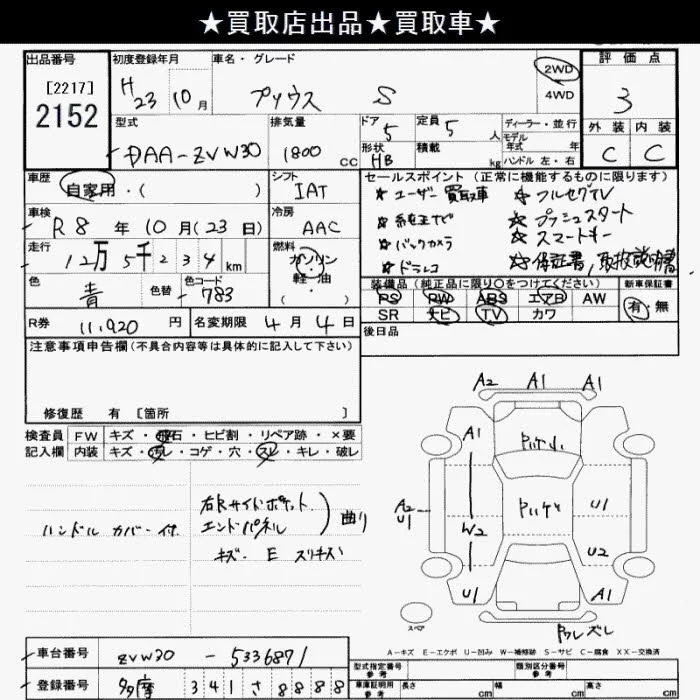 ★買取店出品★買取車★
出品番号
[2217]
2152
初度登録年月
H 23 10 月
車名・グレード
プリウス S
2WD
4WD
評価点
3
外装 内装
C C
型式
DAA-ZVW30
排気量
1800 cc
ドア 5
形状 HB
定員 5 人
積載 kg
ディーラー・並行
モデル
年式 年
ハンドル 左・右
車歴
自家用・( )
シフト
IAT
車検
R8 年 10 月(23 日)
冷房
AAC
走行
12万5千234 km
燃料
ガソリン
軽・油
( ・ )
色
青
色替
色コード
783
R券
11,920 円
名変期限 4 月 4 日
セールスポイント (正常に機能するものに限ります)
☆ ユーザー買取車 ☆ フルセグTV
☆ 純正ナビ ☆ プッシュスタート
☆ バックカメラ ☆ スマートキー
☆ ドラレコ ☆ 保証書,取扱説明書
装備品 (純正品に限り○をつけてください)
PS PW ABS エアB AW
SR ナビ TV カワ
新車保証書
有・無
後日品
注意事項申告欄 (不具合内容等は具体的に記入して下さい)
修復歴 有 [箇所 ]
検査員
記入欄
FW キズ・飛石・ヒビ割・リペア跡・×要
内装 キズ・汚レ・コゲ・穴・スレ・キレ・破レ
ハンドルカバー付
右Rサイドポケット
エンドパネル
) 曲り
キズ・E スリキズ
A2 A1 A1
A1
A2
U1
W2
U1
U1
U2
A1
スペア
A-キズ E-エクボ U-凹み W-補修跡 S-サビ C-腐食 XX-交換済
車台番号
ZVW30 - 5336871
登録番号
多摩 341 さ 8888
型式指定番号
参考
類別区分番号
参考
車庫証明用
参考
長さ cm
幅 cm
高さ cm